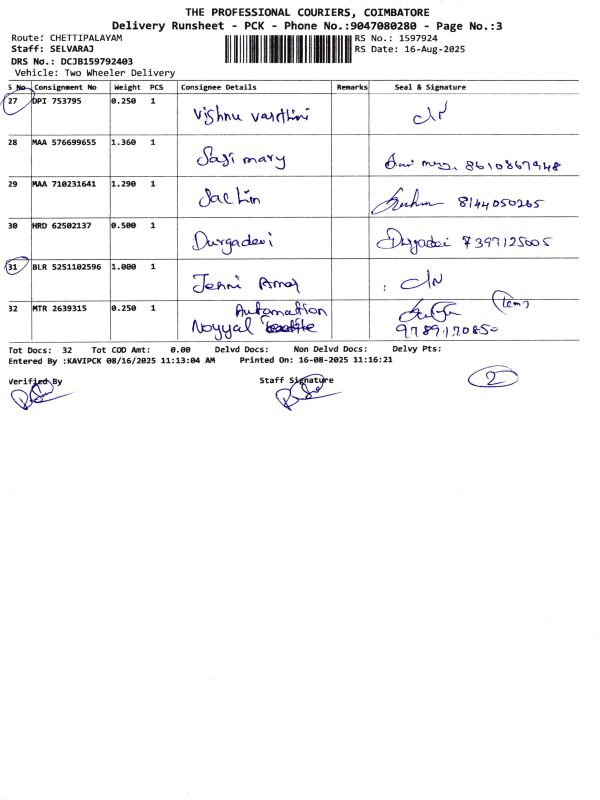 THE PROFESSIONAL COURIERS, COIMBATORE
Delivery Runsheet - PCK - Phone No.:9047080280 - Page No.:3
Route: CHETTIPALAYAM RS No.: 1597924
Staff: SELVARAJ RS Date: 16-Aug-2025
DRS No.: DCJB159792403
Vehicle: Two Wheeler Delivery
S No Consignment No Weight PCS Consignee Details Remarks Seal & Signature
27 DPI 753795 0.250 1 Vishnu Vardhini
28 MAA 576699655 1.360 1 Sagi mary 8610867948
29 MAA 710231641 1.290 1 Sachin 8144050265
30 HRD 62502137 0.500 1 Durgadevi Durgadevi 7397125005
31 BLR 5251102596 1.000 1 Jenni
32 MTR 2639315 0.250 1 Automation
Noyyal 9789170850
Tot Docs: 32 Tot COD Amt: 0.00 Delvd Docs: Non Delvd Docs: Delvy Pts:
Entered By :KAVIPCK 08/16/2025 11:13:04 AM Printed On: 16-08-2025 11:16:21
Verified By Staff Signature 2